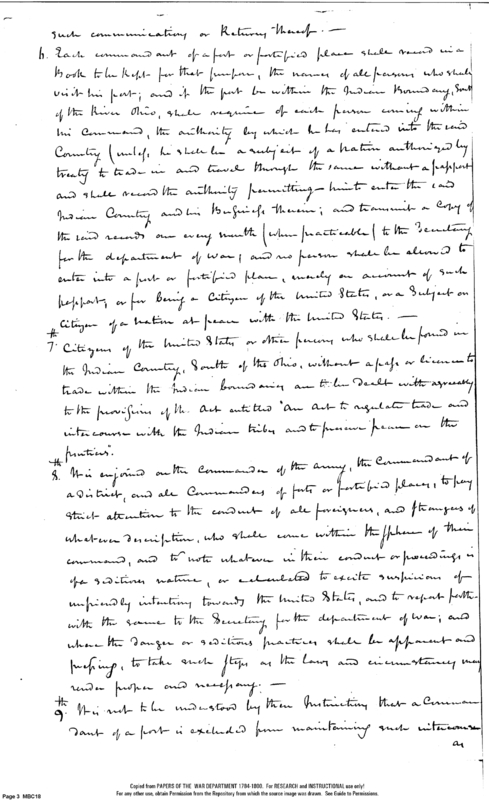 such communications or Returns thereof. —
6. Each commandant of a post or fortified place shall record in a
Book to be kept for that purpose, the names of all persons who shall
visit his post; and if the post be within the Indian Boundary, South
of the River Ohio, shall require of each person coming within
his Command, the authority by which he has entered into the said
Country (unless he shall be a subject of a Nation authorized by
treaty to trade in and travel through the same without a passport
and shall record the authority permitting him to enter the said
Indian Country and his Business therein; and transmit a Copy of
the said records once every month (when practicable) to the Secretary
for the department of war; and no person shall be allowed to
enter into a post or fortified place, merely on account of such
passport, or for being a Citizen of the United States, or a Subject or
Citizen of a Nation at peace with the United States. —
7. Citizens of the United States or other persons who shall be found in
the Indian Country, South of the Ohio, without a pass or licence to
trade within the Indian boundaries are to be dealt with agreeably
to the provisions of the Act entitled "An Act to regulate trade and
intercourse with the Indian tribes and to preserve peace on the
frontiers".
8. It is enjoined on the Commander of the army, the Commandant of
a District, and all Commanders of forts or fortified places, to pay
strict attention to the conduct of all foreigners, and strangers of
whatever description, who shall come within the sphere of their
command, and to note whatever in their conduct or proceedings is
of a seditious nature, or calculated to excite suspicions of
unfriendly intentions towards the United States, and to report forth-
with the same to the Secretary for the department of war; and
where the danger or seditious practices shall be apparent and
pressing, to take such steps as the laws and circumstances may
render proper and necessary. —
9. It is not to be understood by these Instructions that a Comman
dant of a post is excluded from maintaining such intercourse
as
Copied from PAPERS OF THE WAR DEPARTMENT 1784-1800. For RESEARCH and INSTRUCTIONAL use only!
For any other use, obtain Permission from the Repository from which the source image was drawn. See Guide to Permissions.
Page 3 MBC18